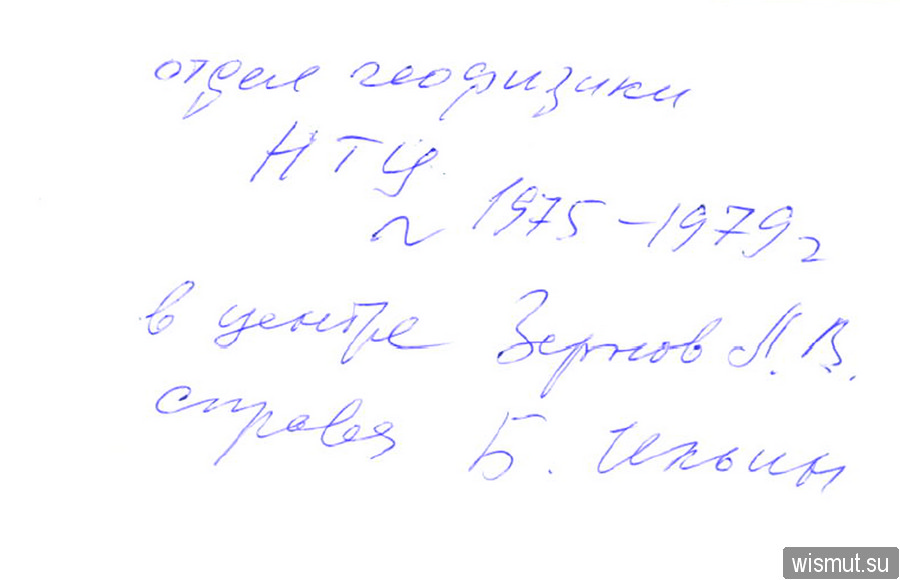 отдел геофизики
НТЦ
~ 1975-1979г
в центре Зернов Л.В.
справа Б. Ильин
wismut.su